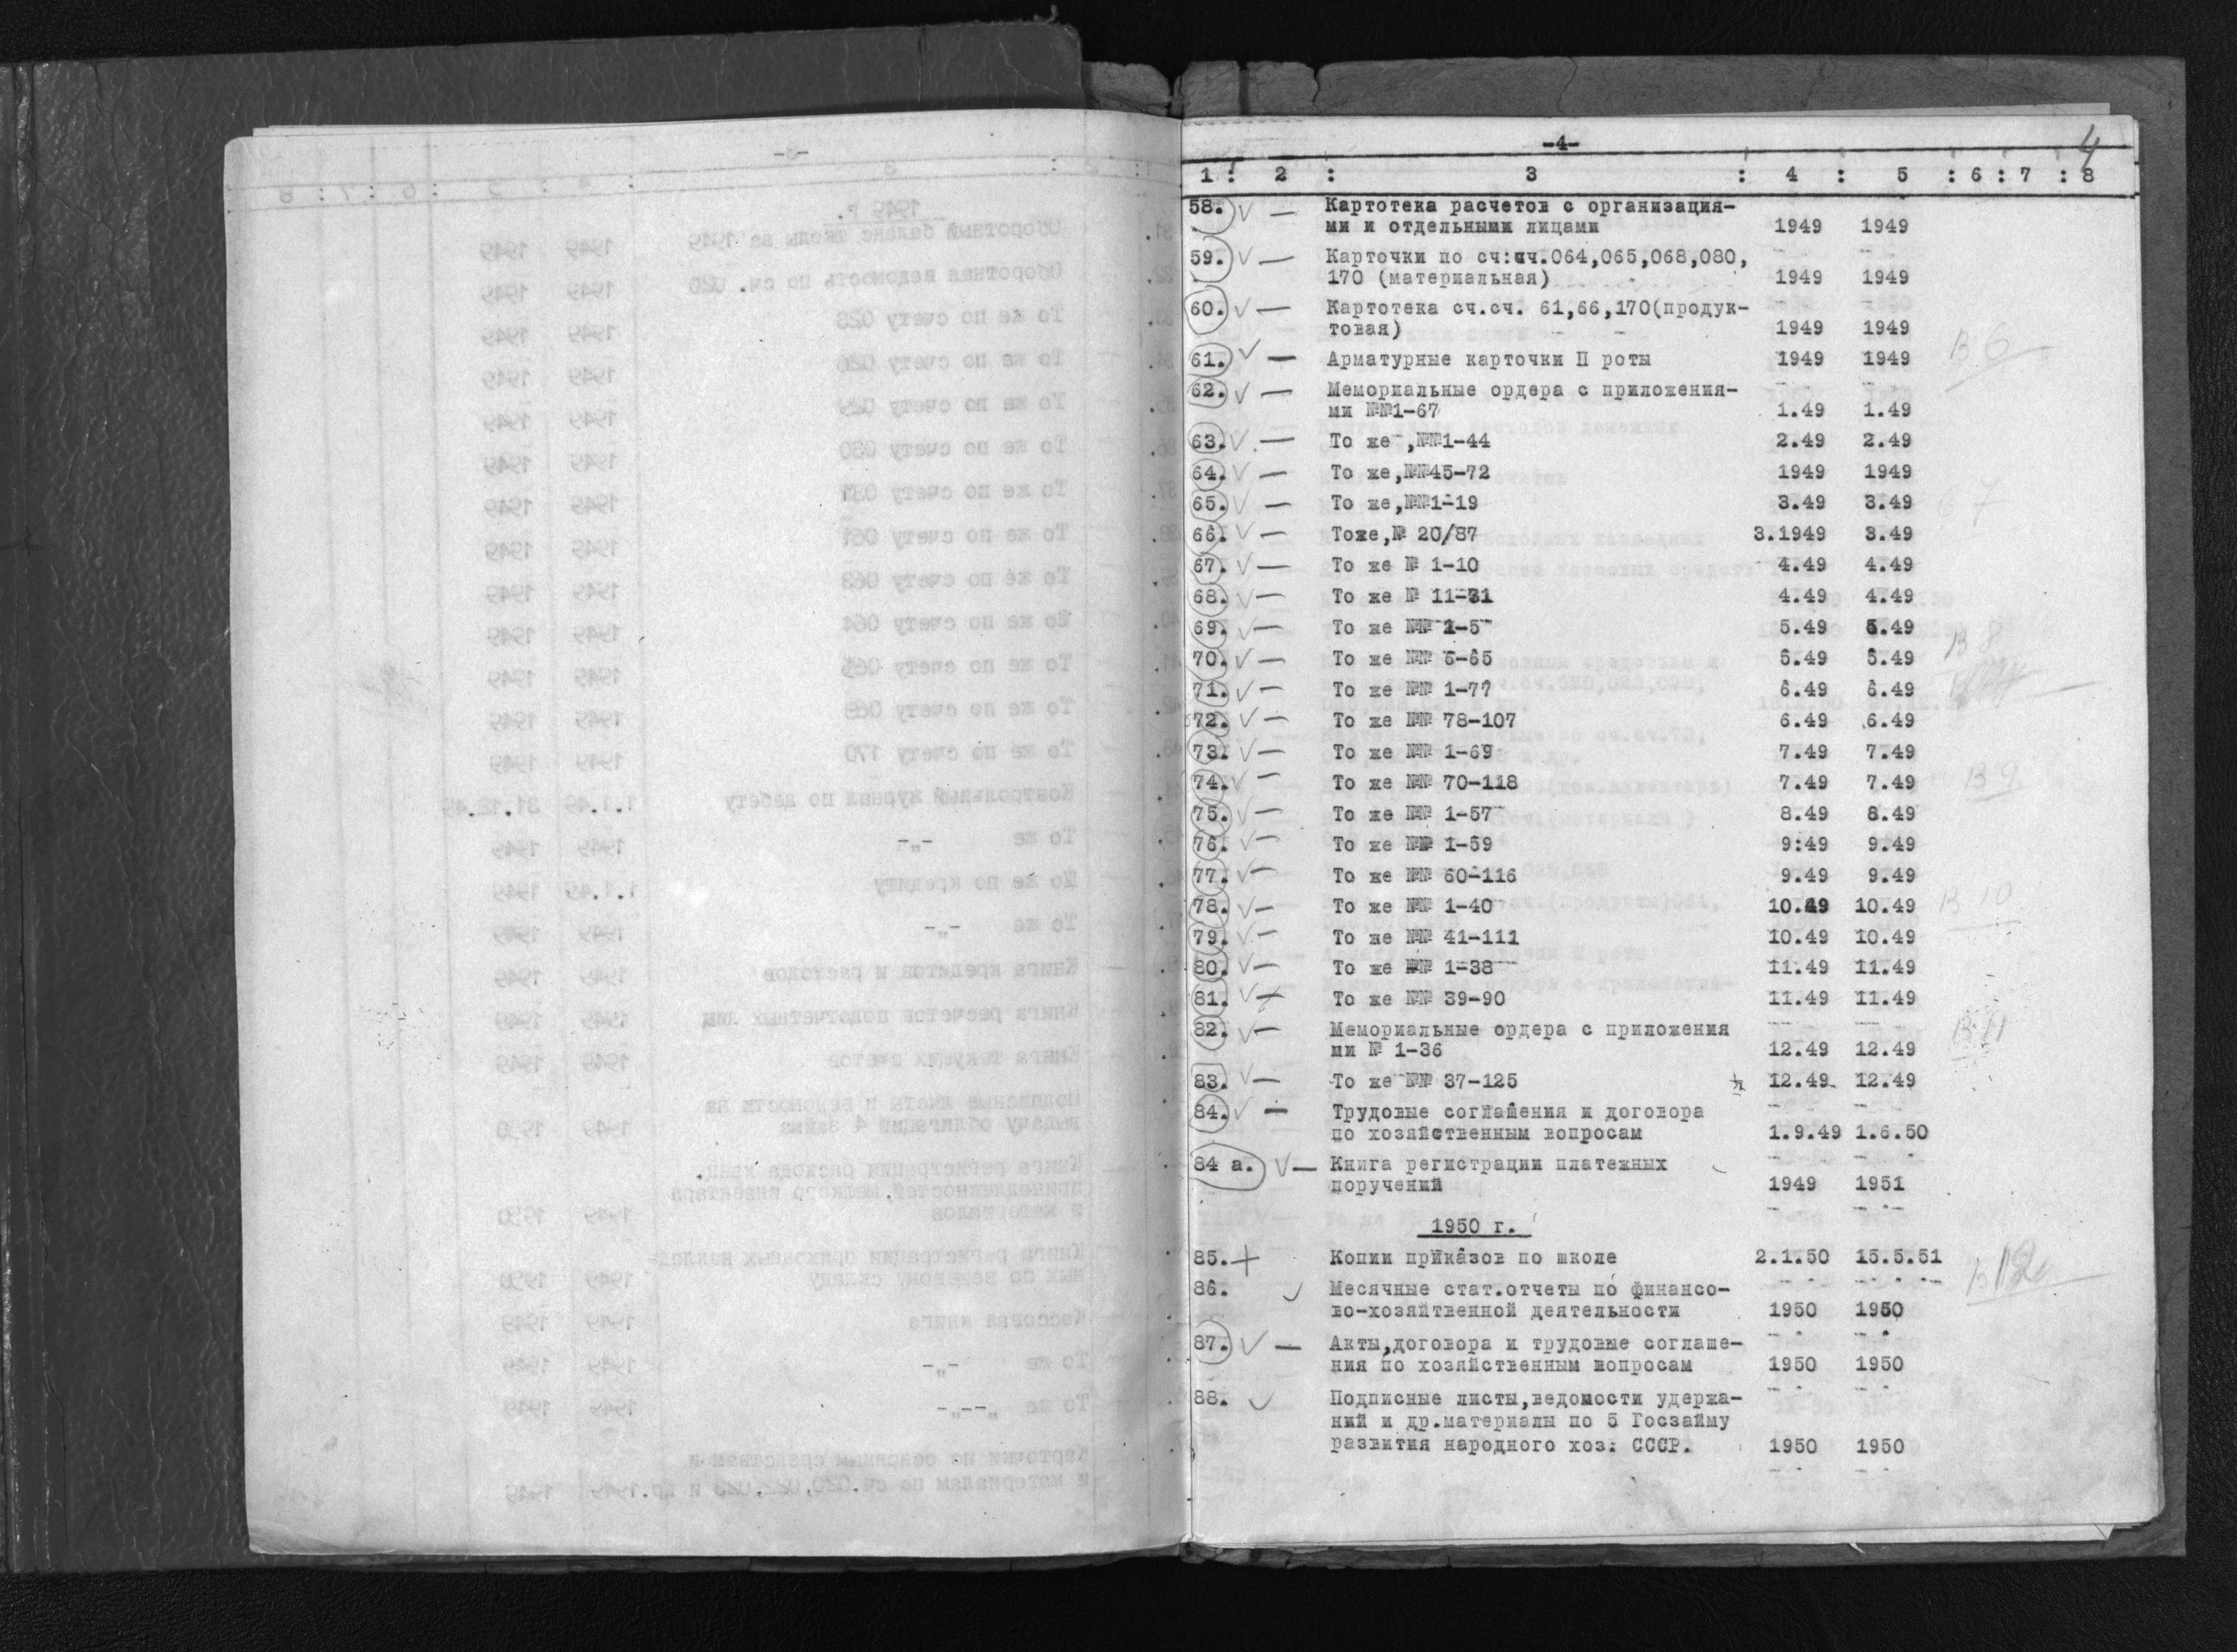 -4-
4
1 : 2 : 3 : 4 : 5 : 6 : 7 : 8
58. V — Картотека расчетов с организация-
ми и отдельными лицами 1949 1949
59. V — Карточки по сч:сч.064,065,068,080,
170 (материальная) 1949 1949
60. V — Картотека сч.сч. 61,66,170(продук-
товая) 1949 1949
61. V — Арматурные карточки П роты 1949 1949 В 6
62. V — Мемориальные ордера с приложения-
ми №№1-67 1.49 1.49
63. V — То же ,№№1-44 2.49 2.49
64. V — То же,№№45-72 1949 1949
65. V — То же,№№1-19 3.49 3.49 7
66. V — Тоже,№ 20/87 3.1949 3.49
67. V — То же № 1-10 4.49 4.49
68. V — То же № 11-31 4.49 4.49
69. V — То же №№ 1-5 5.49 5.49
70. V — То же №№ 6-65 5.49 5.49 В 8
71. V — То же №№ 1-77 6.49 6.49
72. V — То же №№ 78-107 6.49 6.49
73. V — То же №№ 1-69 7.49 7.49
74. V — То же №№ 70-118 7.49 7.49 В 9
75. V — То же №№ 1-57 8.49 8.49
76. V — То же №№ 1-59 9:49 9.49
77. V — То же №№ 60-116 9.49 9.49
78. V — То же №№ 1-40 10.49 10.49 В 10
79. V — То же №№ 41-111 10.49 10.49
80. V — То же №№ 1-38 11.49 11.49
81. V — То же №№ 39-90 11.49 11.49
82. V — Мемориальные ордера с приложения
ми № 1-36 12.49 12.49 В 11
83. V — То же №№ 37-125 12.49 12.49
84. V — Трудовые соглашения и договора
по хозяйственным вопросам 1.9.49 1.6.50
84 а. V — Книга регистрации платежных
поручений 1949 1951
1950 г.
85. + Копии приказов по школе 2.1.50 15.5.51
В 12
86. V Месячные стат.отчеты по финансо-
во-хозяйтвенной деятельности 1950 1950
87. V — Акты,договора и трудовые соглаше-
ния по хозяйственным вопросам 1950 1950
88. V Подписные листы,ведомости удержа-
ний и др.материалы по 5 Госзайму
развития народного хоз. СССР. 1950 1950